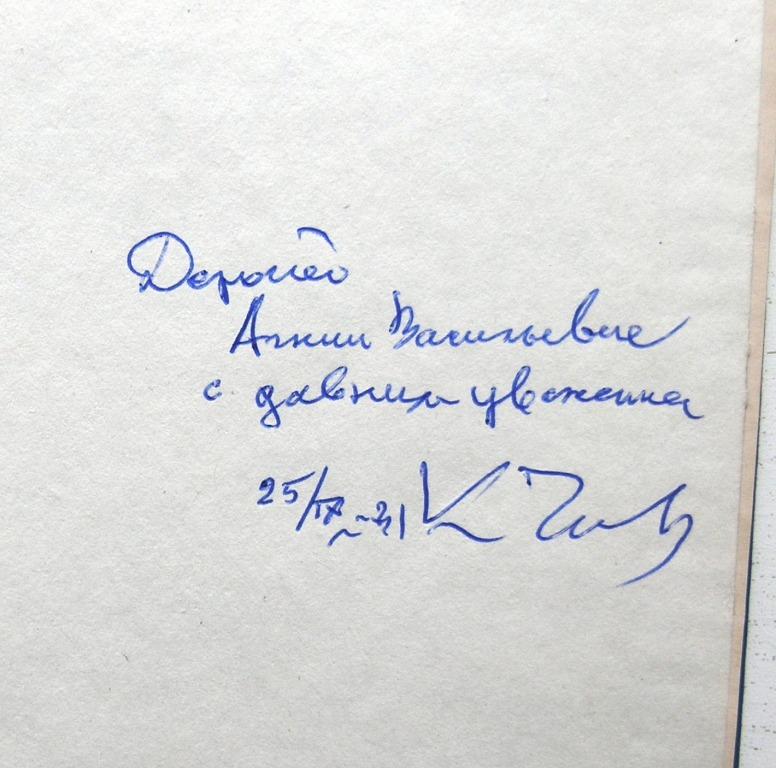 Дорогой
Агнии Васильевне
с давним уважением
25/IX